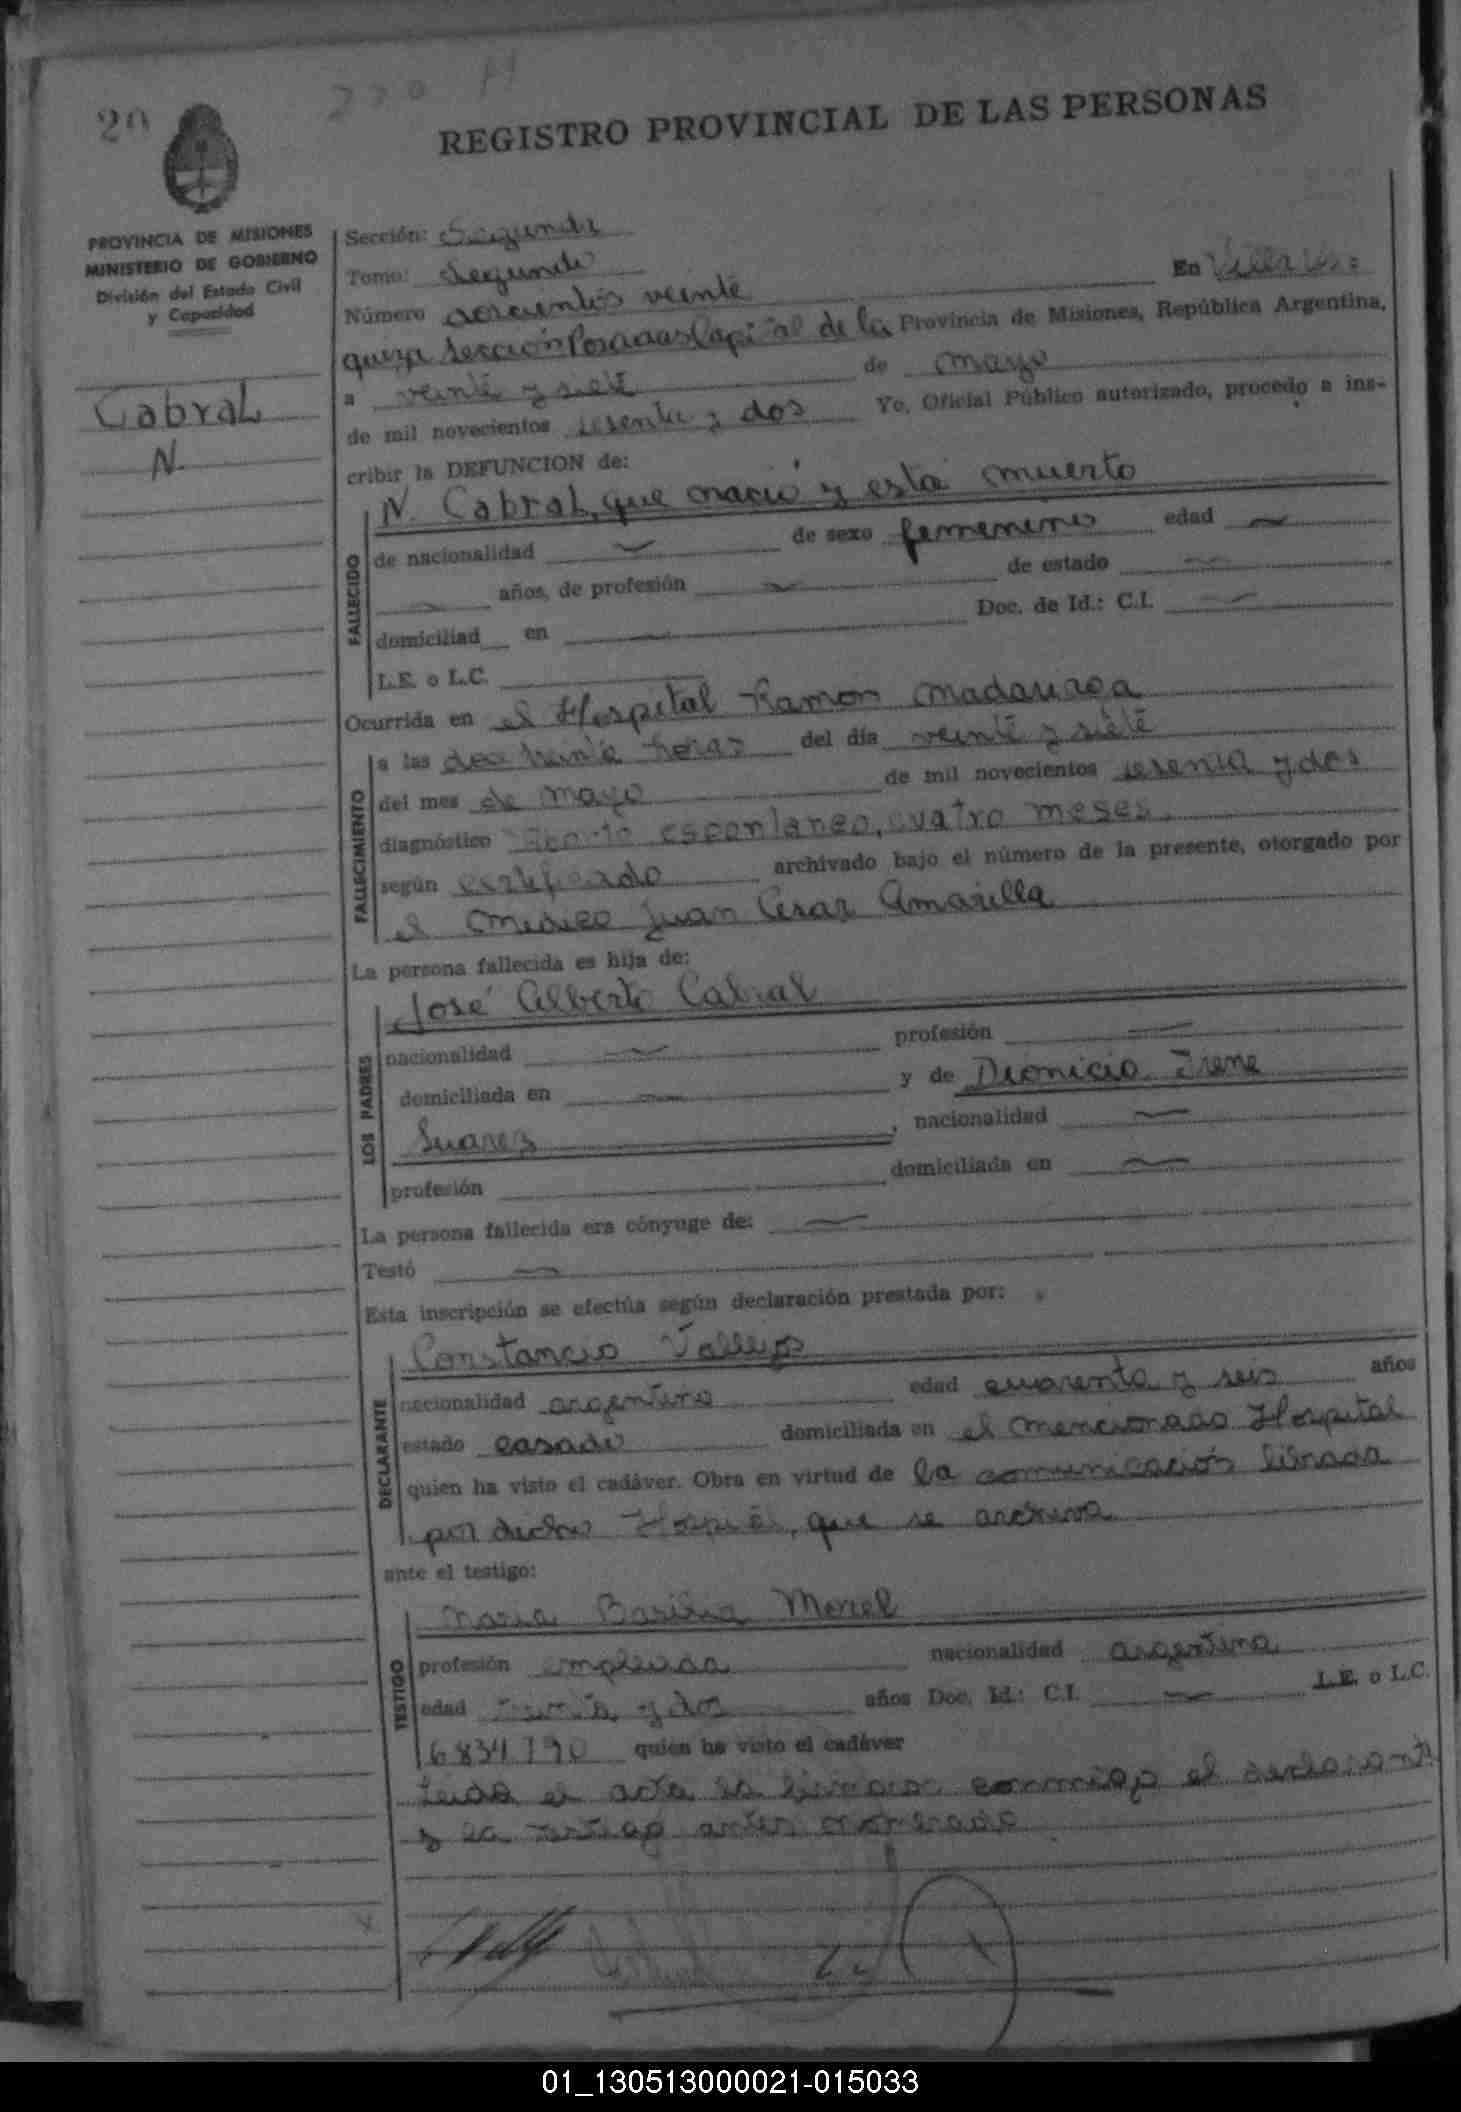 20
220 H
REGISTRO PROVINCIAL DE LAS PERSONAS
PROVINCIA DE MISIONES
MINISTERIO DE GOBIERNO
División del Estado Civil
y Capacidad
Cabral
N.
Sección: Segunda
Tomo: Segundo
Número doscientos veinte En Villa Ur=
quiza Sección Posadas Capital de la Provincia de Misiones, República Argentina,
a veinte y siete de mayo
de mil novecientos sesenta y dos Yo, Oficial Público autorizado, procedo a ins-
cribir la DEFUNCION de:
N. Cabral, que nació y está muerto
FALLECIDO
de nacionalidad de sexo femenino edad
años, de profesión de estado
domiciliad en Doc. de Id.: C.I.
L.E. o L.C.
Ocurrida en el Hospital Ramón Madariaga
FALLECIMIENTO
a las doce treinta horas del día veinte y siete
del mes de mayo de mil novecientos sesenta y dos
diagnóstico Aborto espontaneo, cuatro meses.
según certificado archivado bajo el número de la presente, otorgado por
el médico Juan Cesar Amarilla
La persona fallecida es hija de:
LOS PADRES
José Alberto Cabral
nacionalidad profesión
domiciliada en y de Dionicia Irene
Suarez, nacionalidad
profesión domiciliada en
La persona fallecida era cónyuge de:
Testó
Esta inscripción se efectúa según declaración prestada por:
DECLARANTE
Constancio Vallejos
nacionalidad argentino edad cuarenta y seis años
estado casado domiciliada en el mencionado Hospital
quien ha visto el cadáver. Obra en virtud de la comunicación librada
por dicho Hospital, que se archiva
ante el testigo:
TESTIGO
Maria Basilia Morcel
profesión empleada nacionalidad argentina
edad treinta y dos años Doc. Id.: C.I. L.E. o L.C.
6834790 quien ha visto el cadáver
Leida el acta la firmaron conmigo el declarante
y la testigo antes nombrado
01_130513000021-015033